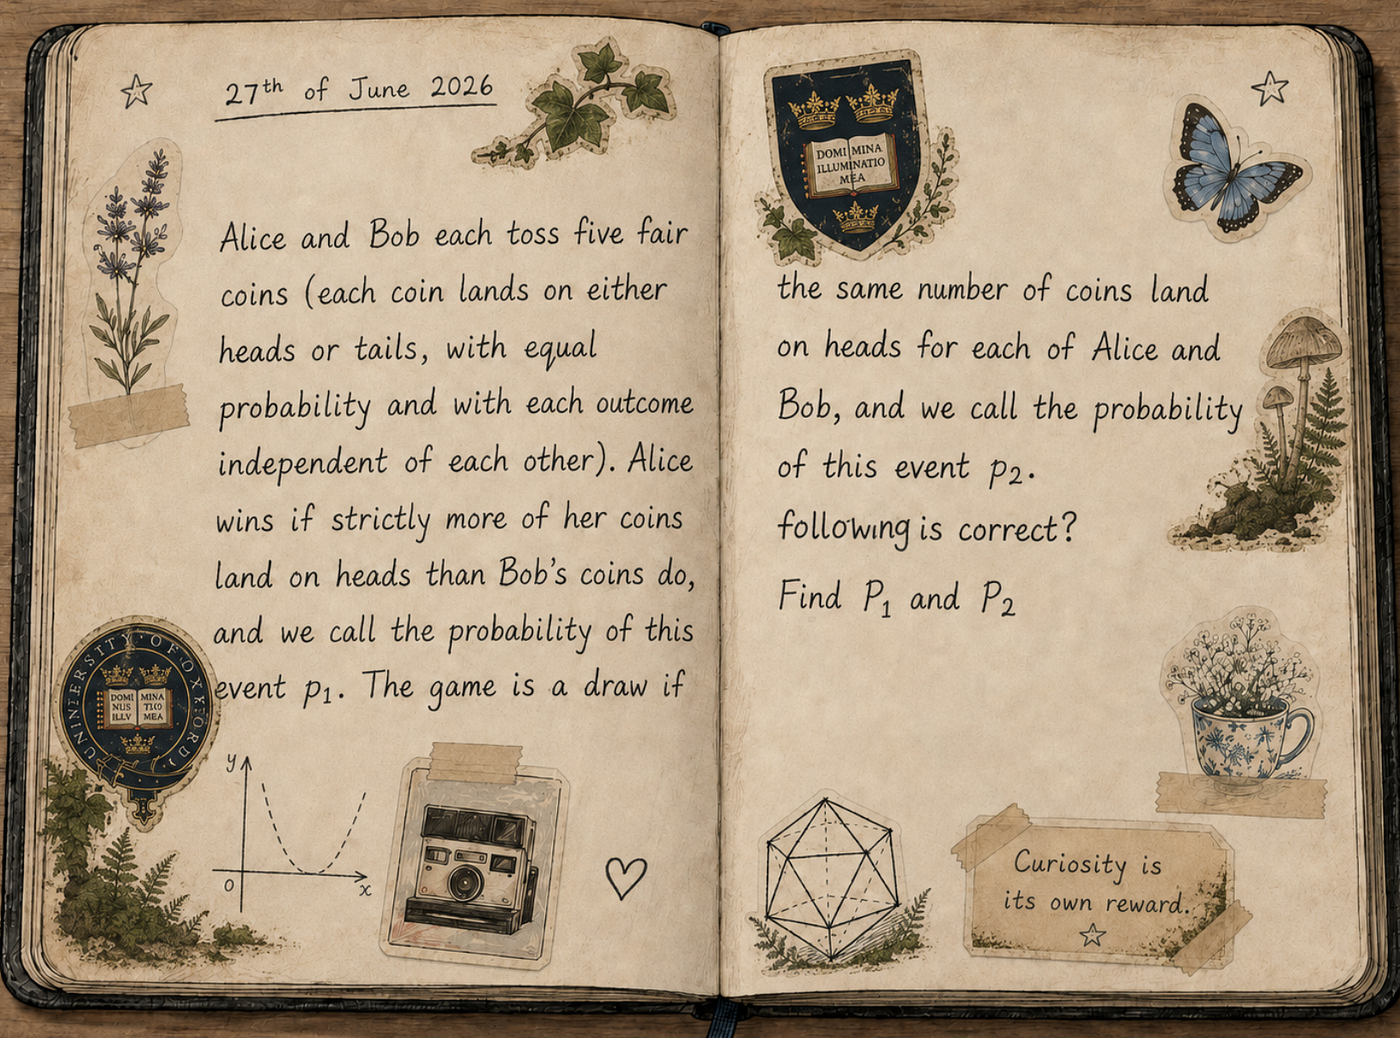 27th of June 2026
Alice and Bob each toss five fair
coins (each coin lands on either
heads or tails, with equal
probability and with each outcome
independent of each other). Alice
wins if strictly more of her coins
land on heads than Bob's coins do,
and we call the probability of this
event p₁. The game is a draw if
UNINERSTTY·OF·OXXFORD
DOMI MINA
NUS TIO
ILLV MEA
y
O
x
DOMI MINA
ILLUMINATIO
MEA
the same number of coins land
on heads for each of Alice and
Bob, and we call the probability
of this event p₂.
following is correct?
Find P₁ and P₂
Curiosity is
its own reward.